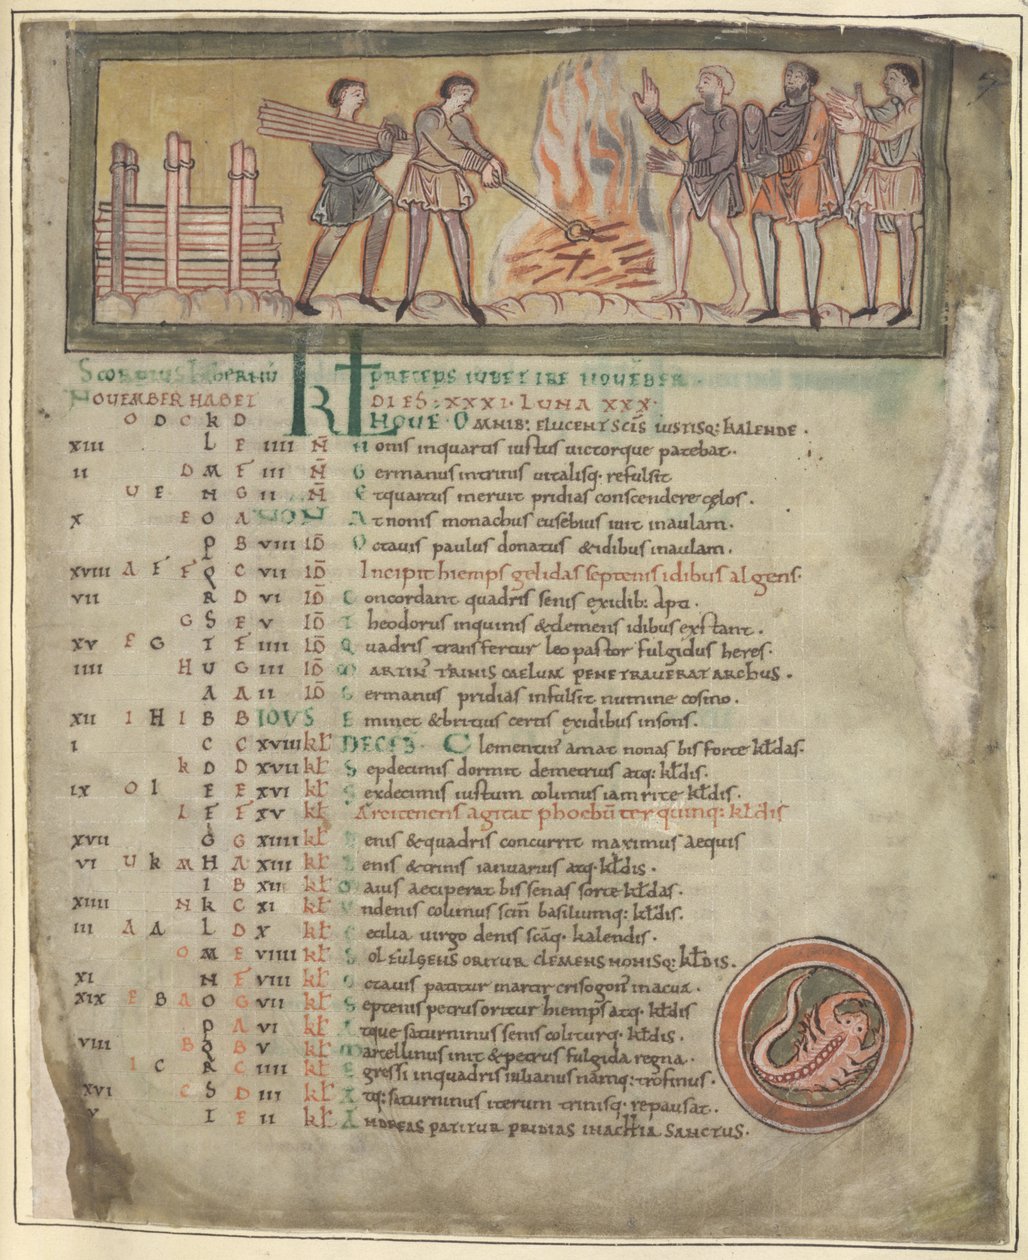 Scorpius hibernū KL preceps iubet ire novēber
November habet dies: xxxı· luna xxx·
O D C k D nove· Omnib: elucent scis iustisq: kalende.
xııı L F ıııı N̄ Nonis inquartis iustus uictorque patebat·
ıı D M F ııı N̄ Germanus intrinis uitalisq· refulsit
U E N G ıı N̄ Et quartus meruit pridias conscendere cęlos.
x E O A NON At nonis monachus eusebius iuit inaulam.
P B vııı ID Octauis paulus donatus & idibus inaulam.
xvııı A F F Q C vıı ID Incipit hiemps gelidas septenis idibus algens·
vıı R D vı ID Concordant quadris senis exidib:
G S E v ID Theodorus inquinis & clemens idibus exstant.
xv F G T F ıııı ID Quadris transfertur leo pastor fulgidus heres·
ıııı H U G ııı ID Martin' trinis caelum penetraverat archus.
A A ıı ID Germanus pridias infulsit numine cosmo.
xıı I H I B B IDVS Eminet & britius certis exidibus insons.
ı C C xvııı kł DECĒB· Clementin' amat nonas bis forte kłdas·
k D D xvıı kł Sepdecimis dormit demetrius atq: kłdis·
ıx O I E E xvı kł Sexdecimis iustum columus iam rite kłdis.
L F F xv kł Arcitenens agitat phoebū ter quinq: kłdis
xvıı G G xıııı kł Denis & quadris concurrit maximus aequis
vı U k M H A xııı kł Denis & trinis ianuarius atq· kłdis.
I B xıı kł Gaius accıperat bis senas sorte kłdas.
xıııı N k C xı kł Undenis colimus scm̄ basiliumq: kłdis.
ııı A A L D x kł Cecilia virgo denis scāq· kalendis.
O M E vıııı kł Sol fulgens oritur clemens nonisq: kłdis.
xı N F vııı kł Octauis patitur martir crisogon' in
xıx F B A O G vıı kł Septenis petrus oritur hiemps atq: kłdis
P A vı kł Atque saturninus senis coliturq· kłdis.
vııı B Q B v kł Marcellinus init & petrus fulgida regna.
I C R C ıııı kł Egressi inquadris iulianus namq: trofinus.
xvı C S D ııı kł Atq: saturninus iterum trinisq· repausat.
v T E ıı kł Andreas patitur pridias in achia sanctus.